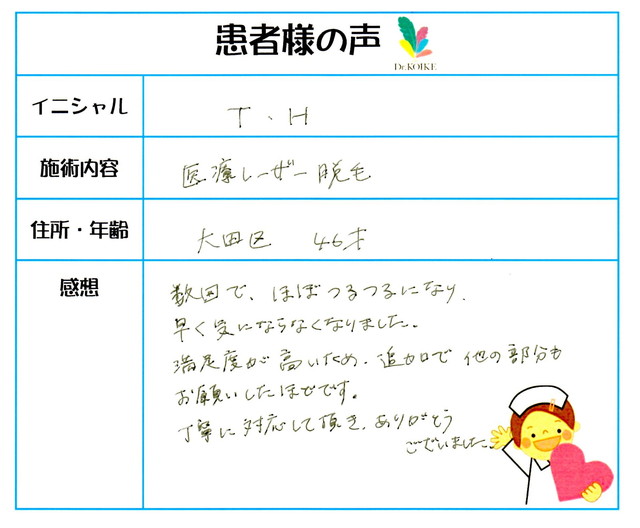 患者様の声
Dr.KOIKE
イニシャル
T・H
施術内容
医療レーザー脱毛
住所・年齢
大田区 46才
感想
数回で、ほぼつるつるになり、
早く気にならなくなりました。
満足度が高いため、追加で他の部分も
お願いしたほどです。
丁寧に対応して頂き、ありがとう
ございました。